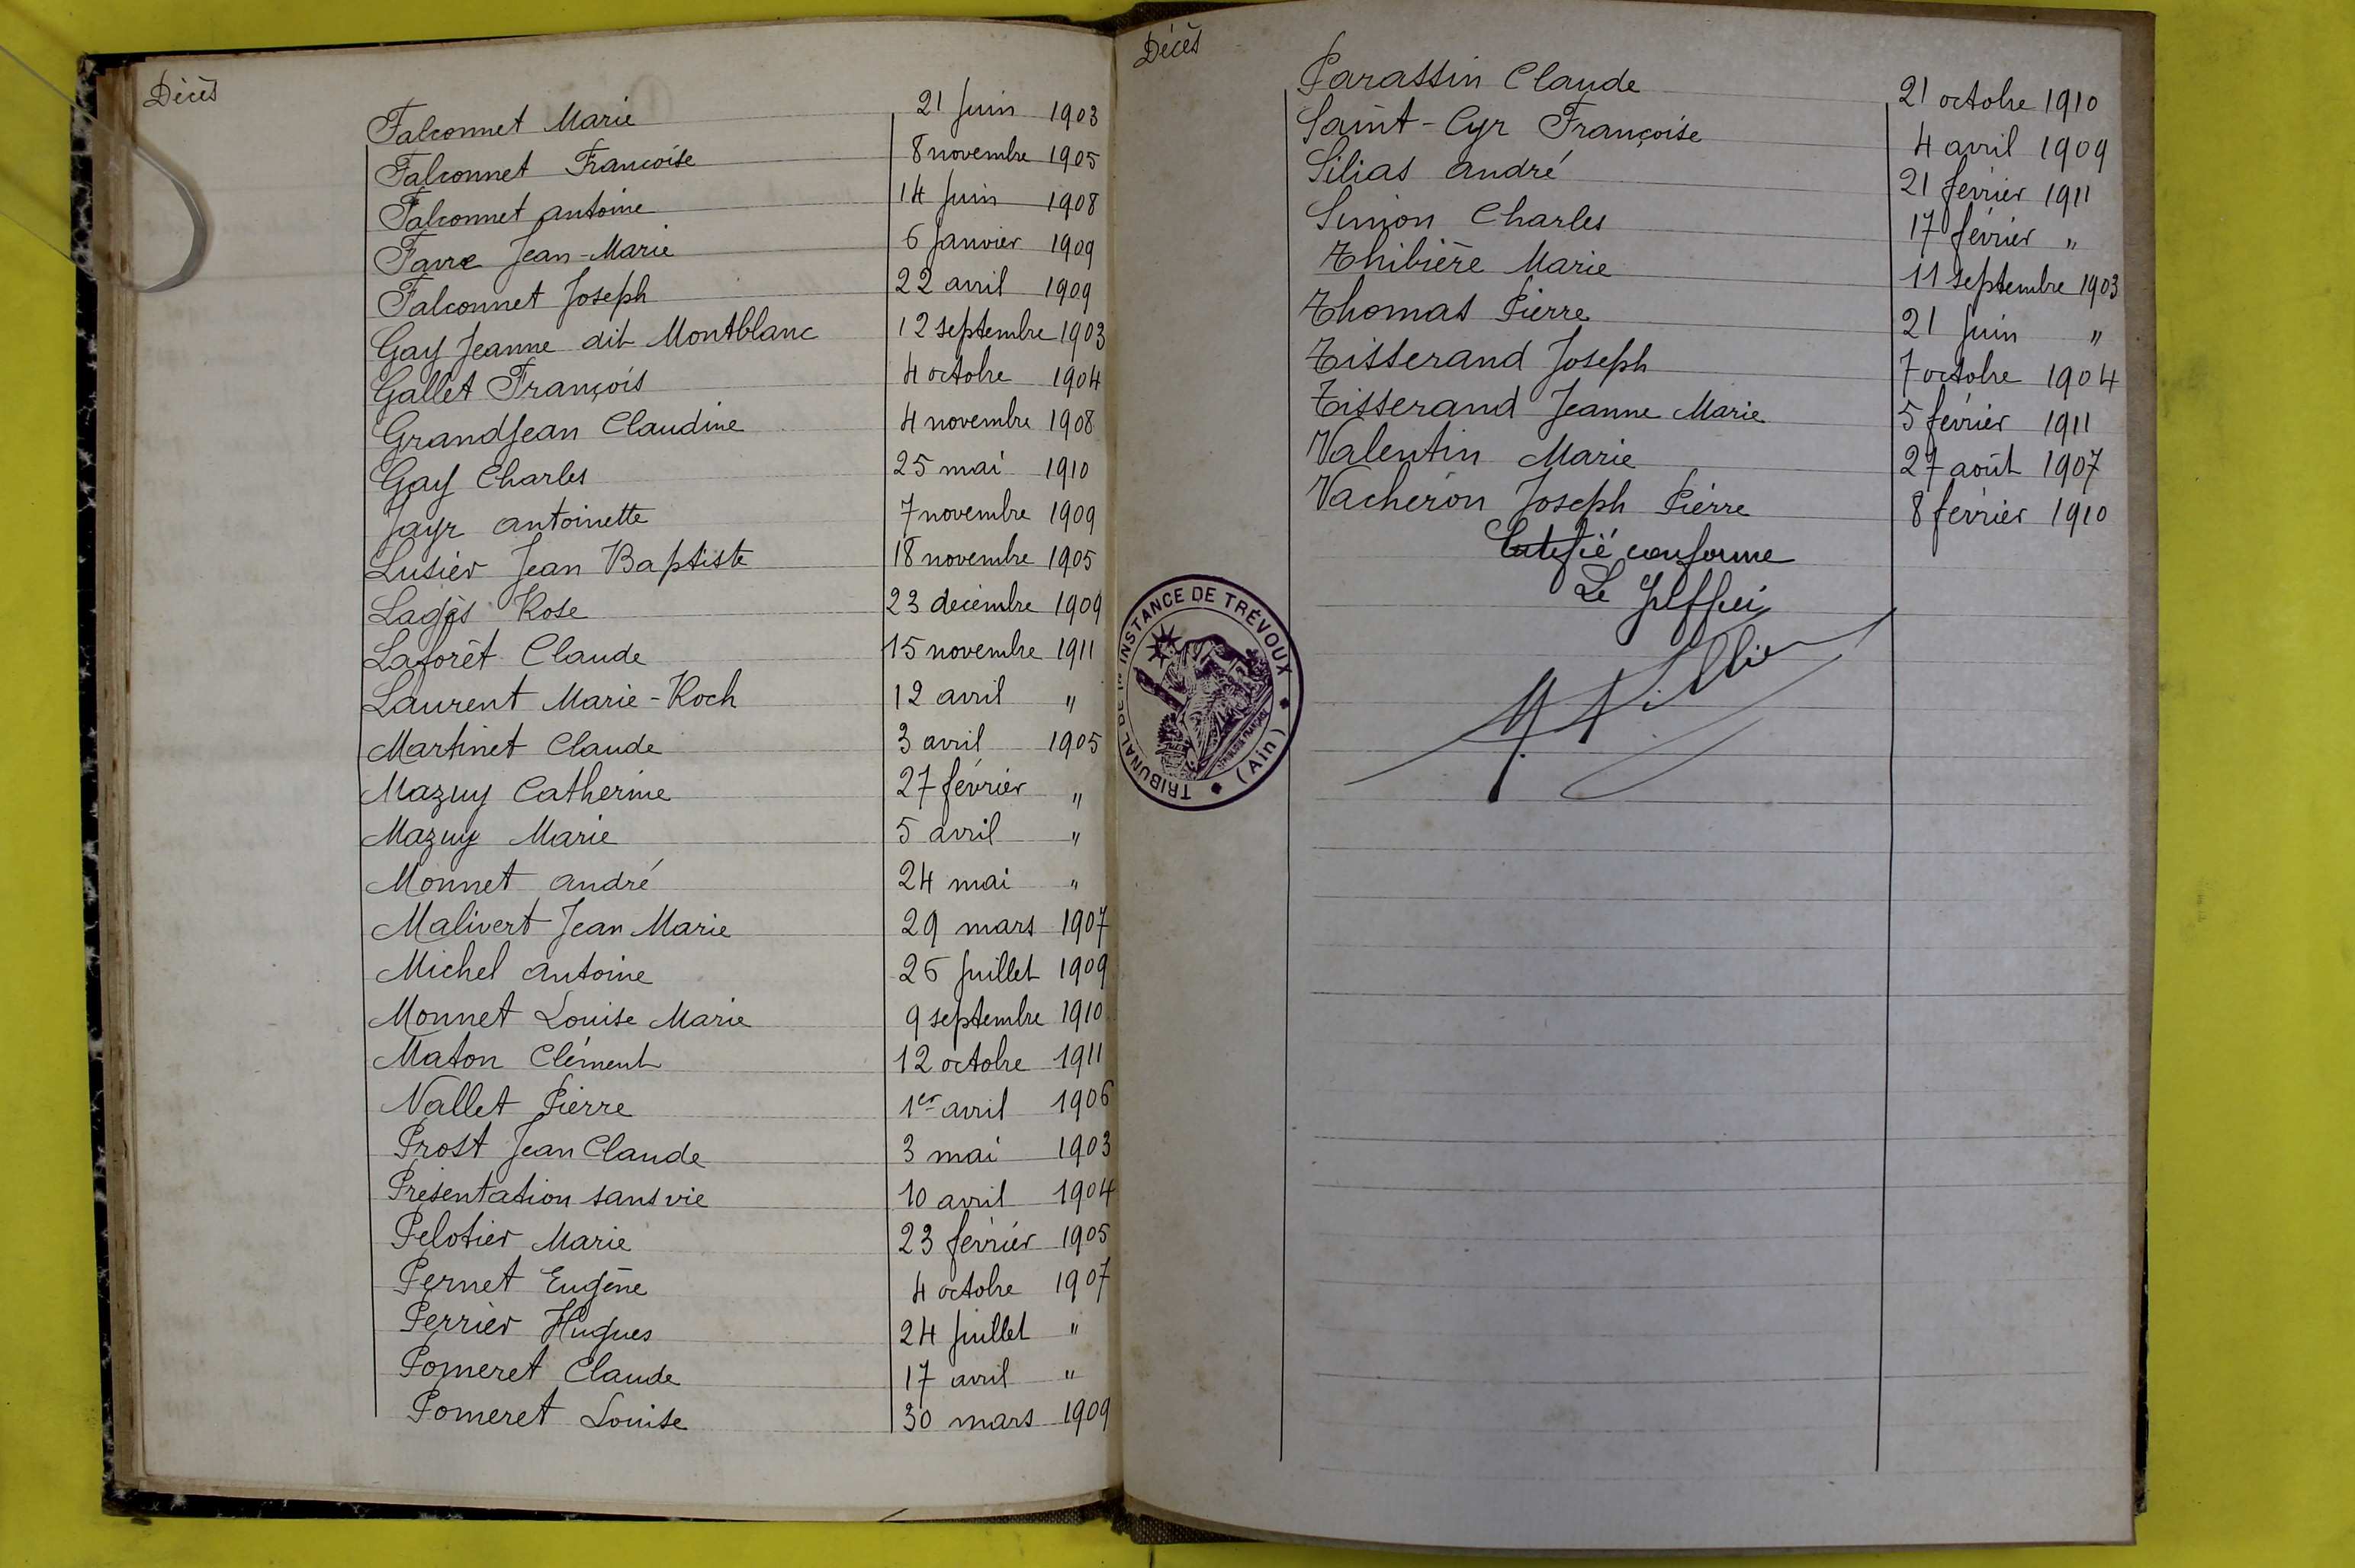 Décès
Falconnet Marie 21 Juin 1903
Falconnet Francoise 8 novembre 1905
Falconnet antoine 14 Juin 1908
Favre Jean-Marie 6 Janvier 1909
Falconnet Joseph 22 avril 1909
Gay Jeanne dit Montblanc 12 septembre 1903
Gallet François 4 octobre 1904
GrandJean Claudine 4 novembre 1908
Gay Charles 25 mai 1910
Jayr antoinette 7 novembre 1909
Lusier Jean Baptiste 18 novembre 1905
Rose 23 décembre 1909
Laforêt Claude 15 novembre 1911
Laurent Marie-Roch 12 avril "
Martinet Claude 3 avril 1905
Mazuy Catherine 27 février "
Mazuy Marie 5 avril "
Monnet andré 24 mai "
Malivert Jean Marie 29 mars 1907
Michel antoine 26 Juillet 1909
Monnet Louise Marie 9 septembre 1910
Maton Clément 12 octobre 1911
Nallet Pierre 1er avril 1906
Prost Jean Claude 3 mai 1903
Présentation sans vie 10 avril 1904
Pelotier Marie 23 février 1905
Pernet Eugène 4 octobre 1907
Perrier Hugues 24 Juillet "
Pomeret Claude 17 avril "
Pomeret Louise 30 mars 1909
Décès
Parassin Claude 21 octobre 1910
Saint-Cyr Françoise 4 avril 1909
Silias andré 21 février 1911
Simon Charles 17 février "
Thibière Marie 11 septembre 1903
Thomas Pierre 21 Juin "
Tisserand Joseph 7 octobre 1904
Tisserand Jeanne Marie 5 février 1911
Valentin Marie 27 août 1907
Vacheron Joseph Pierre 8 février 1910
Certifié conforme
Le Greffier
TRIBUNAL DE 1re INSTANCE DE TRÉVOUX
(Ain)